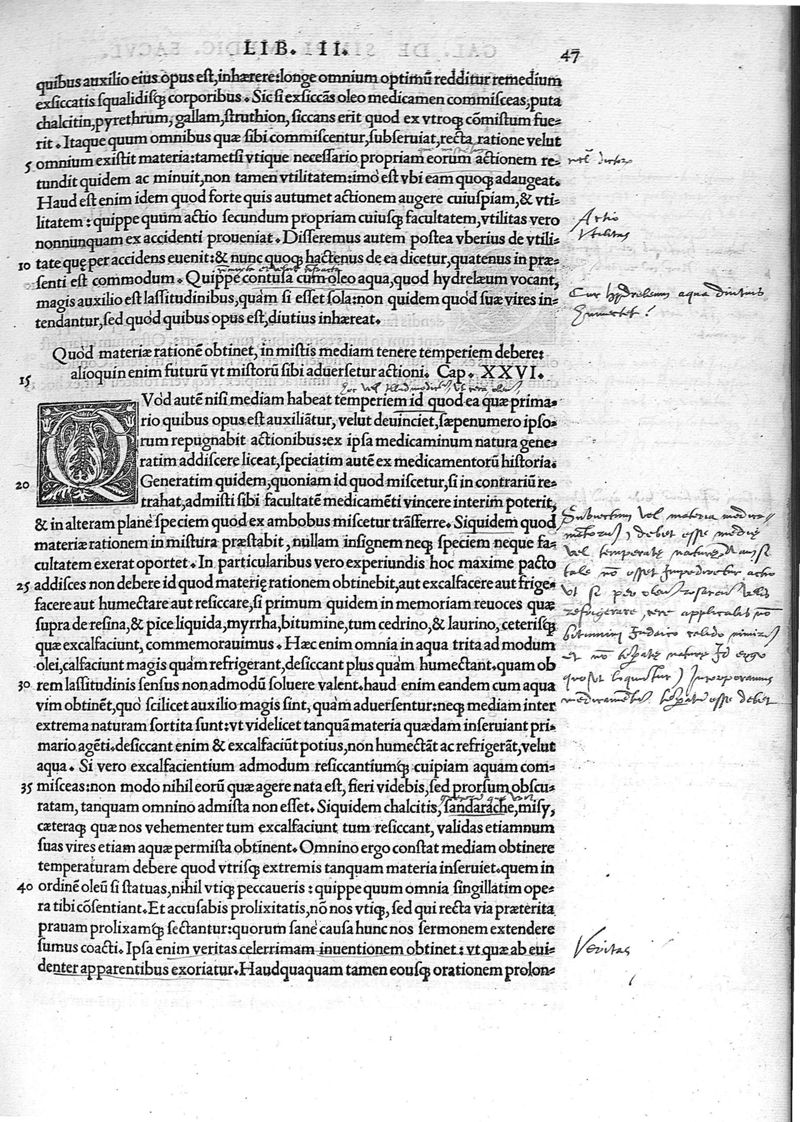 LIB. II. 47
quibus auxilio eius opus est, inhærere: longe omnium optimũ redditur remedium
exsiccatis squalidisq́; corporibus. Sic si exsiccãs oleo medicamen commisceas; puta
chalcitin, pyrethrum, gallam, struthion, siccans erit quod ex vtroq́; cõmistum fue-
rit. Itaque quum omnibus quæ sibi commiscentur, subseruiat, recta ratione velut
5 omnium existit materia: tametsi vtique necessario propriam eorum actionem re-
tundit quidem ac minuit, non tamen vtilitatem: imò est vbi eam quoq; adaugeat.
Haud est enim idem quod forte quis autumet actionem augere cuiuspiam, & vti-
litatem: quippe quum actio secundum propriam cuiusq́; facultatem, vtilitas vero
nonnunquam ex accidenti proueniat. Disseremus autem postea vberius de vtili-
10 tate quę per accidens euenit: & nunc quoq; hactenus de ea dicetur, quatenus in præ-
senti est commodum. Quippe contusa cum oleo aqua, quod hydrelæum vocant,
magis auxilio est lassitudinibus, quàm si esset sola: non quidem quòd suæ vires in-
tendantur, sed quòd quibus opus est, diutius inhæreat.
Actio
Vtilitas
Cur hydreleum aqua diutius
Quòd materiæ rationẽ obtinet, in mistis mediam tenere temperiem debere:
15 alioquin enim futurũ vt mistorũ sibi aduersetur actioni. Cap. XXVI.
QVod autẽ nisi mediam habeat temperiem id quod ea quæ prima-
rio quibus opus est auxiliãtur, velut deuinciet, sæpenumero ipso-
rum repugnabit actionibus: ex ipsa medicaminum natura gene-
ratim addiscere liceat, speciatim autẽ ex medicamentorũ historia.
20 Generatim quidem, quoniam id quod miscetur, si in contrariũ re-
trahat, admisti sibi facultatẽ medicamẽti vincere interim poterit,
& in alteram planè speciem quod ex ambobus miscetur trãsferre. Siquidem quod
materiæ rationem in mistura præstabit, nullam insignem neq; speciem neque fa-
cultatem exerat oportet. In particularibus vero experiundis hoc maxime pacto
25 addisces non debere id quod materię rationem obtinebit, aut excalfacere aut frige-
facere aut humectare aut resiccare, si primum quidem in memoriam reuoces quæ
supra de resina, & pice liquida, myrrha, bitumine, tum cedrino, & laurino, ceterisq́;
quæ excalfaciunt, commemorauimus. Hæc enim omnia in aqua trita ad modum
olei, calfaciunt magis quàm refrigerant, desiccant plus quàm humectant. quam ob
30 rem lassitudinis sensus non admodũ soluere valent. haud enim eandem cum aqua
vim obtinẽt, quò scilicet auxilio magis sint, quàm aduersentur: neq; mediam inter
extrema naturam sortita sunt: vt videlicet tanquã materia quædam inseruiant pri-
mario agẽti. desiccant enim & excalfaciũt potius, non humectãt ac refrigerãt, velut
aqua. Si vero excalfacientium admodum resiccantiumq́; cuipiam aquam com-
35 misceas: non modo nihil eorũ quæ agere nata est, fieri videbis, sed prorsum obscu-
ratam, tanquam omnino admista non esset. Siquidem chalcitis, sandarache, misy,
cæteraq́; quæ nos vehementer tum excalfaciunt tum resiccant, validas etiamnum
suas vires etiam aquæ permista obtinent. Omnino ergo constat mediam obtinere
temperaturam debere quod vtrisq; extremis tanquam materia inseruiet. quem in
40 ordinẽ oleũ si statuas, nihil vtiq; peccaueris: quippe quum omnia singillatim ope-
ra tibi cõsentiant. Et accusabis prolixitatis, nõ nos vtiq;, sed qui recta via præterita
prauam prolixamq́; sectantur: quorum sanè causa hunc nos sermonem extendere
sumus coacti. Ipsa enim veritas celerrimam inuentionem obtinet: vt quæ ab eui-
denter apparentibus exoriatur. Haudquaquam tamen eousq; orationem prolon-
Subiectum vel materia medica-
vel temperatę naturę
medicamentis debet
Veritas